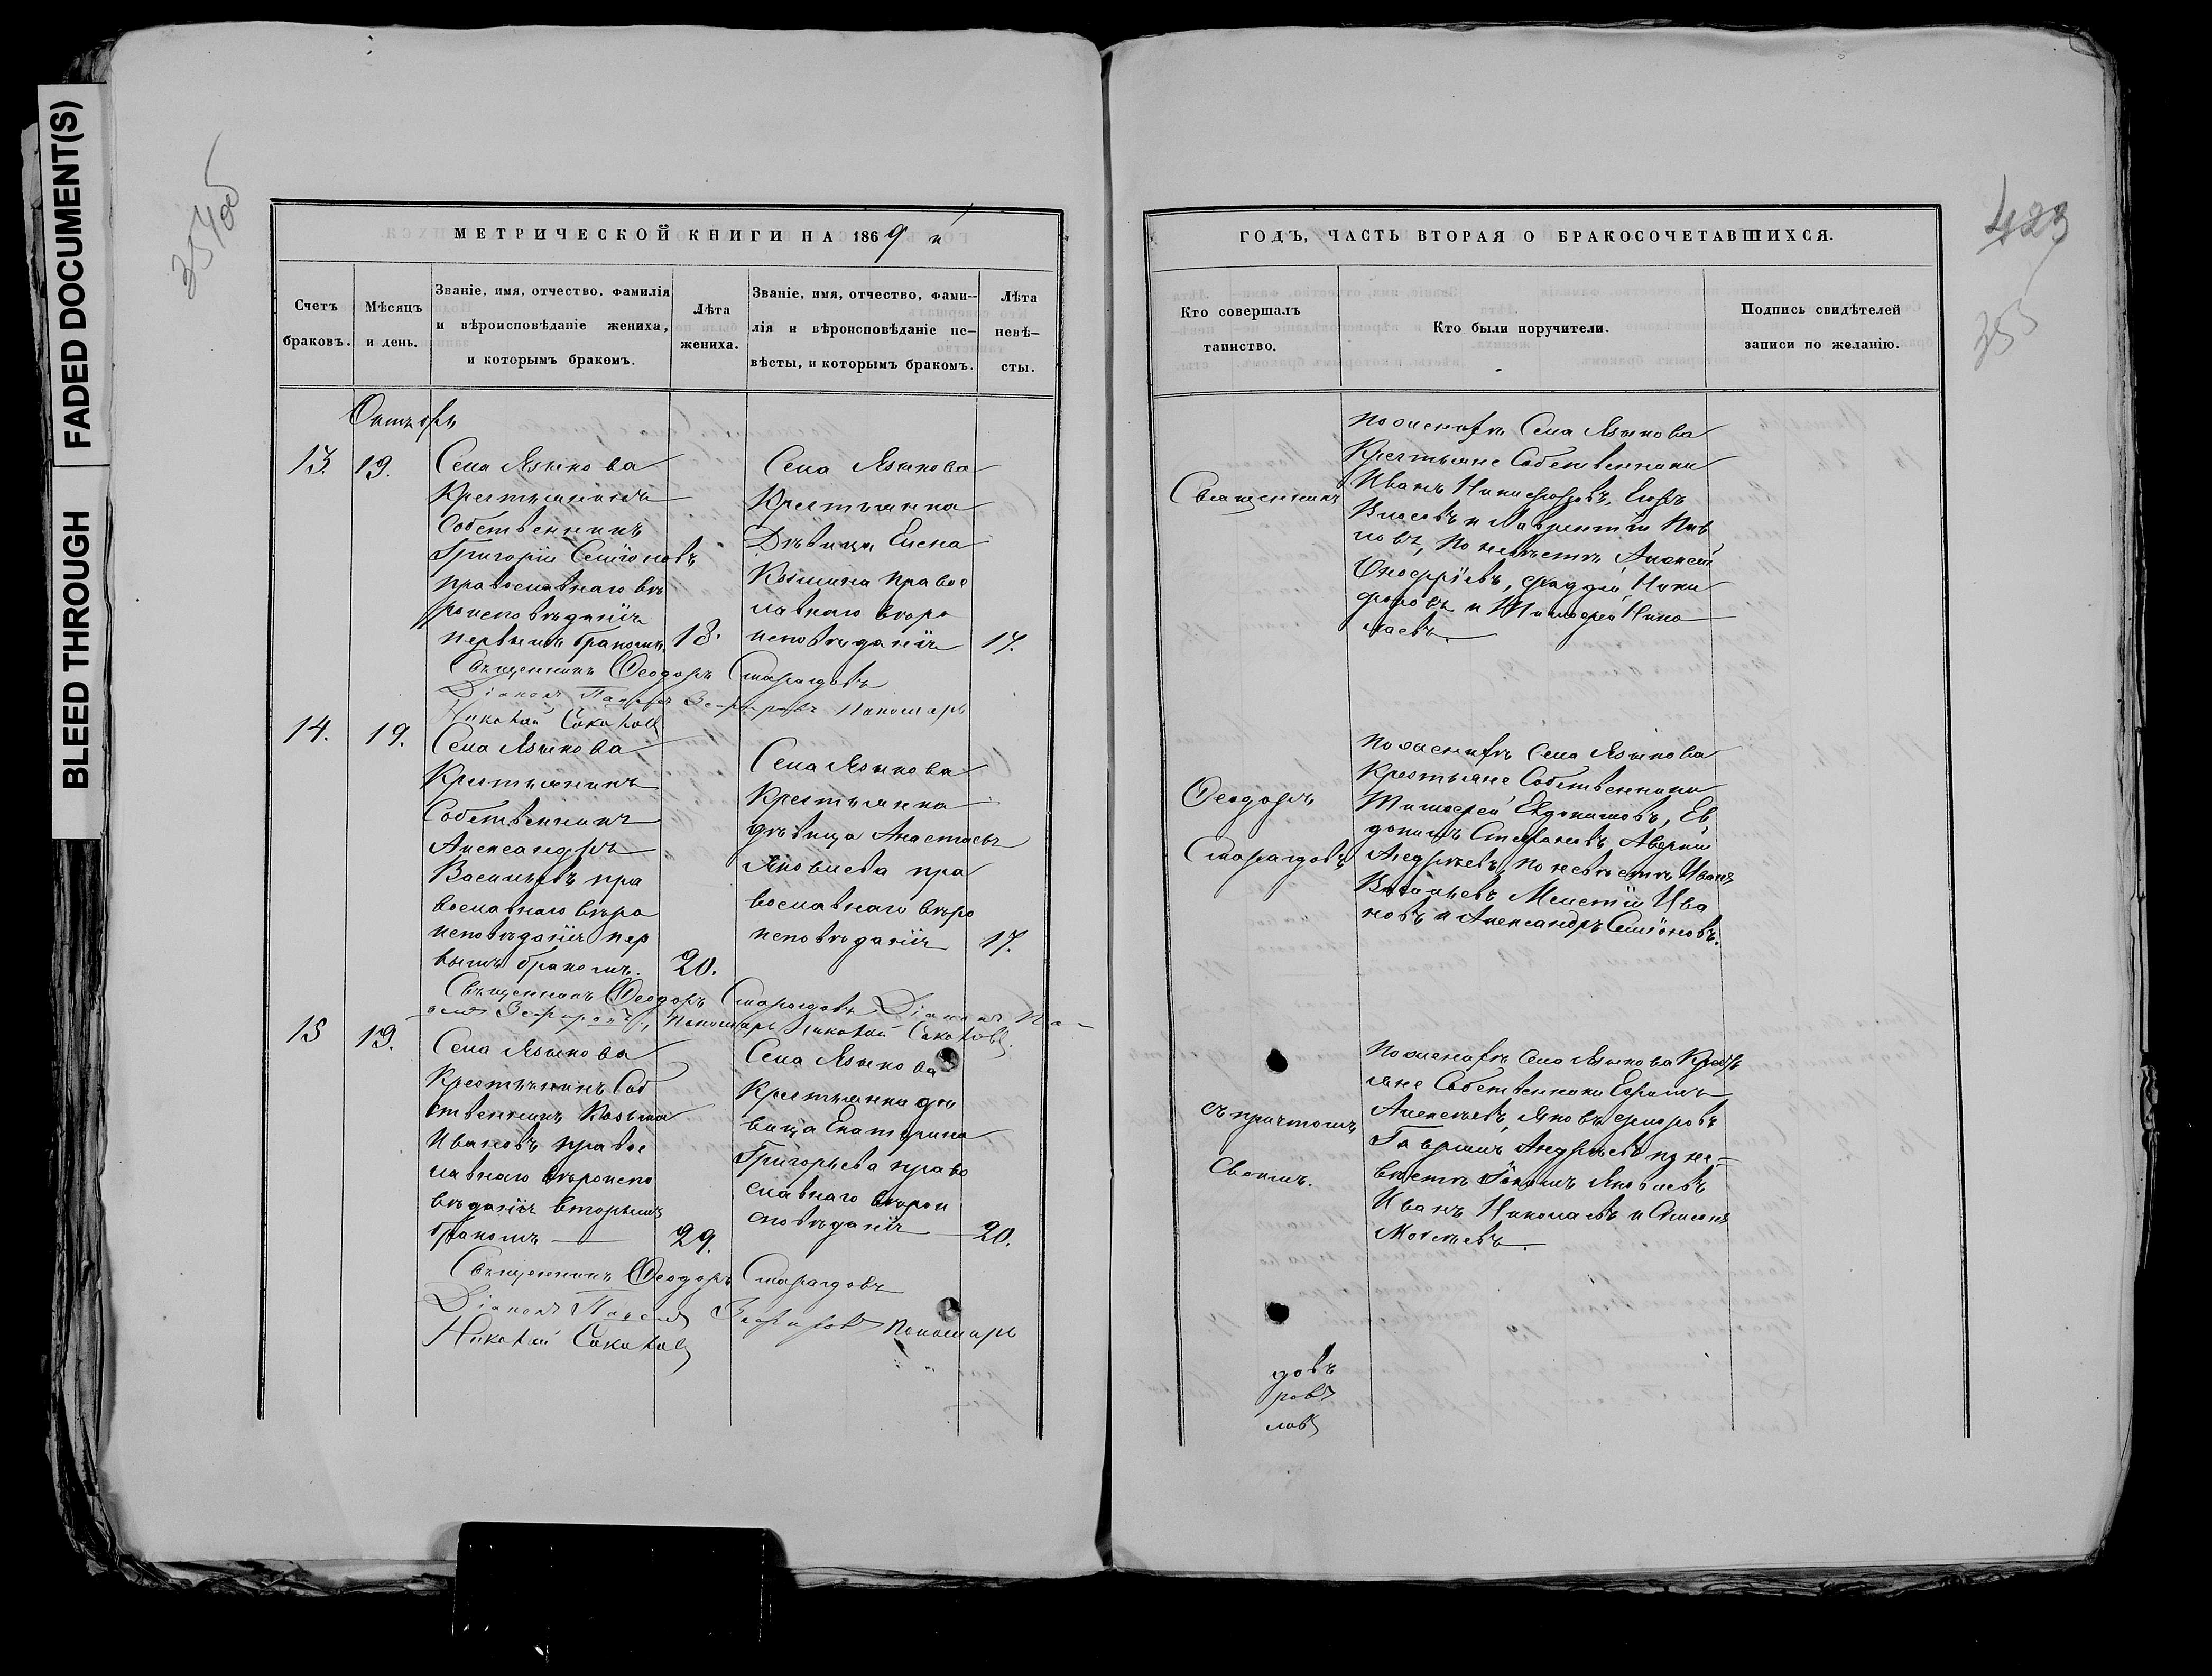 BLEED THROUGH
FADED DOCUMENT(S)
354об
МЕТРИЧЕСКОЙ КНИГИ НА 1869 й
Счетъ браковъ.
Мѣсяцъ и день.
Званіе, имя, отчество, фамилія
и вѣроисповѣданіе жениха,
и которымъ бракомъ.
Лѣта жениха.
Званіе, имя, отчество, фами-
лія и вѣроисповѣданіе не-
вѣсты, и которымъ бракомъ.
Лѣта невѣ-
сты.
Октябрь
13. 19.
Села Языкова
Крестьянинъ
Собственникъ
Григорій Семіоновъ
православнаго вѣ
роисповѣданія
первымъ бракомъ 18.
Села Языкова
Крестьянка
Дѣвица Елена
Козмина правос
лавнаго вѣро
исповѣданія 17.
Священникъ Ѳеодоръ Смарагдовъ
Діаконъ Павелъ Зефировъ Пономарь
Николай Соколовъ
14. 19.
Села Языкова
Крестьянинъ
Собственникъ
Александръ
Васильевъ пра
вославнаго вѣро
исповѣданія пер
вымъ бракомъ. 20.
Села Языкова
Крестьянка
дѣвица Анастасья
Яковлева пра
вославнаго вѣро
исповѣданія 17.
Священникъ Ѳеодоръ Смарагдовъ Діаконъ Па-
велъ Зефировъ, Пономарь Николай Соколовъ.
15 19.
Села Языкова
Крестьянинъ Соб
ственникъ Козьма
Ивановъ правос
лавнаго вѣроиспо
вѣданія вторымъ
бракомъ 29.
Села Языкова
Крестьянка дѣ
вица Екатерина
Григорьева право
славнаго вѣрои
сповѣданія 20.
Священникъ Ѳеодоръ Смарагдовъ
Діаконъ Павелъ Зефировъ Пономарь
Николай Соколовъ
423
355
ГОДЪ, ЧАСТЬ ВТОРАЯ О БРАКОСОЧЕТАВШИХСЯ.
Кто совершалъ
таинство.
Кто были поручители.
Подпись свидѣтелей
записи по желанію.
Священникъ
Ѳеодоръ
Смарагдовъ
съ причтомъ
своимъ.
По женихѣ Села Языкова
Крестьяне Собственники
Иванъ Никифоровъ, Егоръ
и Лаврентій Пав
ловъ, По невѣстѣ Алексѣй
Онофріевъ, Фаддей Ники
форовъ и Тимофей Нико
лаевъ.
По женихѣ Села Языкова
Крестьяне Собственники
Тимофей Евдокимовъ, Ев
докимъ Стефановъ Аверкій
Андреевъ, По невѣстѣ Иванъ
Васильевъ Мелетій Ива
новъ и Александръ Семіоновъ.
По женихѣ Села Языкова Кресть
яне Собственники Ефремъ
Алексѣевъ, Яковъ Федоровъ
Гаврилъ Андреевъ по не-
вѣстѣ Яковлевъ
Иванъ Николаевъ и Симеонъ
Моисеевъ.
довъ
ровъ
ловъ